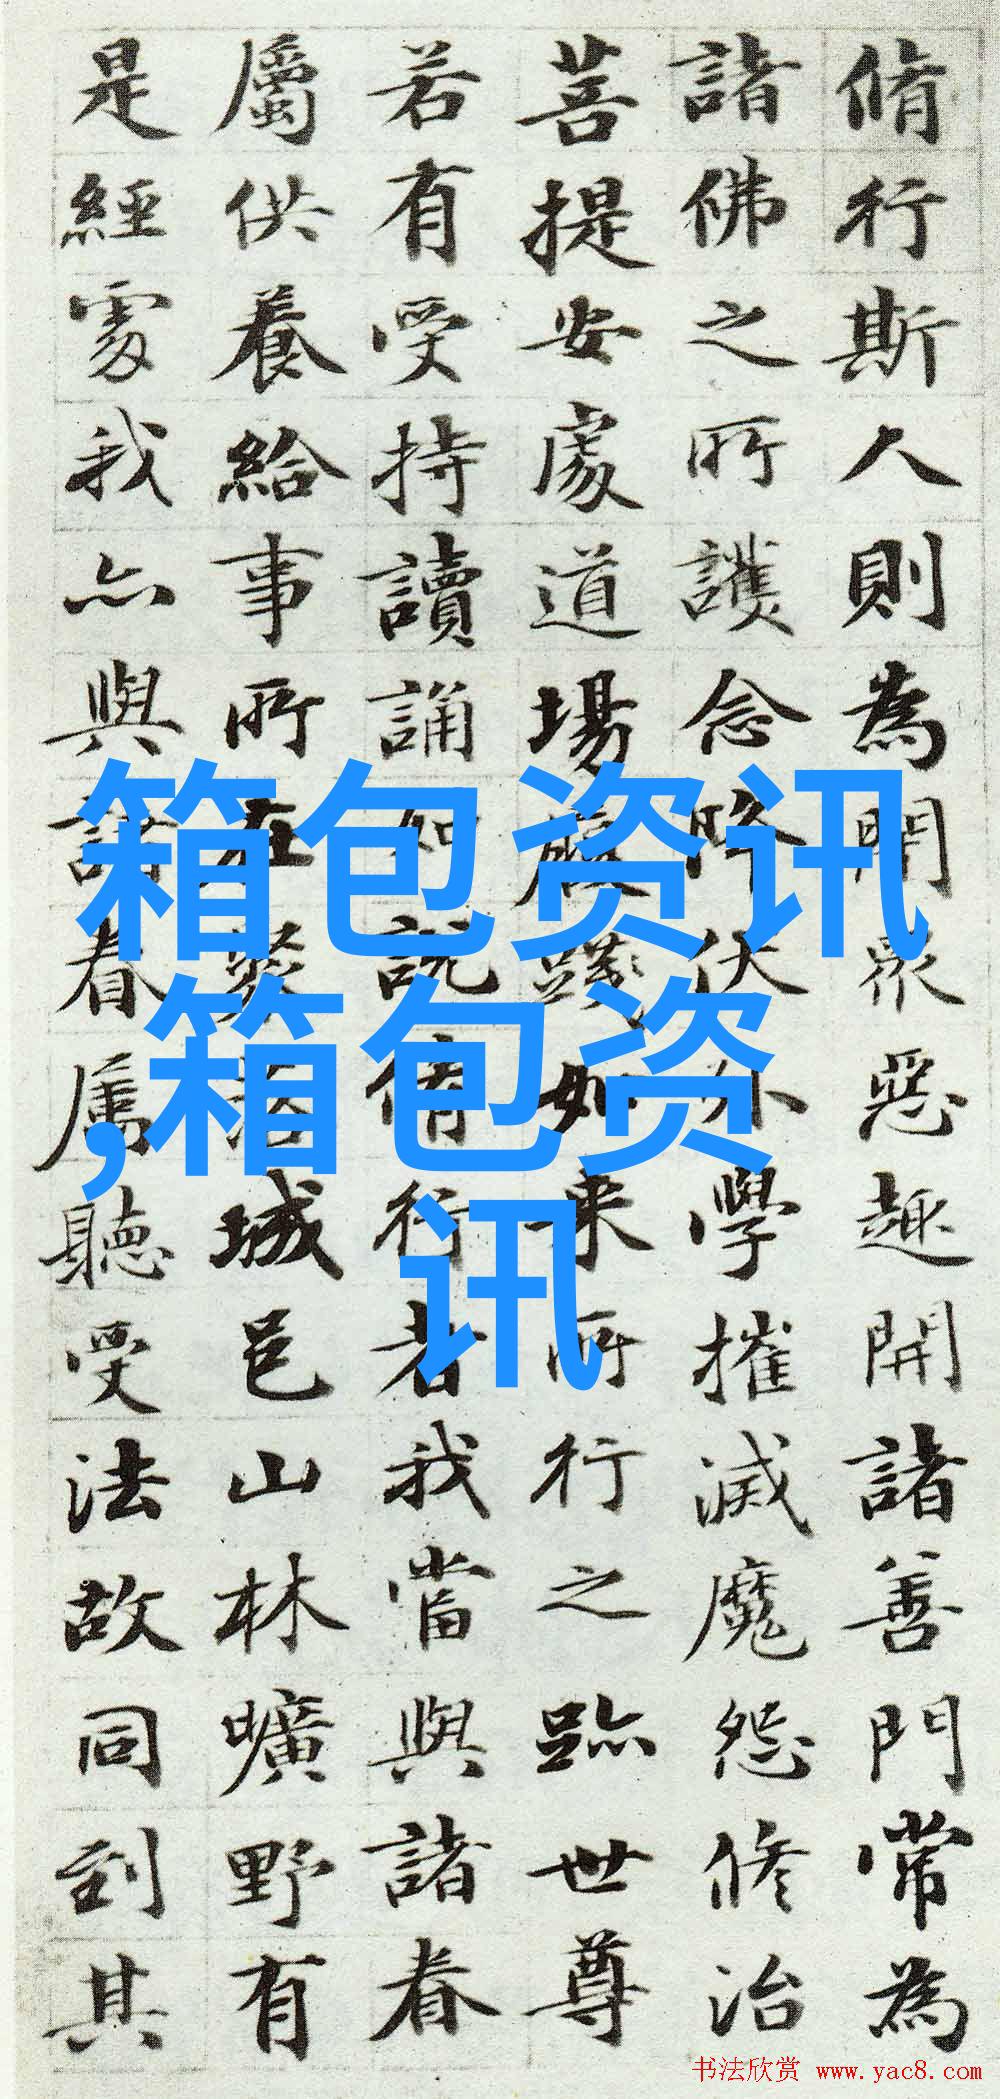 脩行斯人則為閇眾惡趣開諸善門常為
諸佛之所護念降伏外學摧滅魔怨修治
菩提安處道場履踐如来所行之跡世尊
若有受持讀誦如說脩行者我當與諸眷
屬供養給事所在聚落城邑山林曠野有
是經處我亦與諸眷屬聽受法故同到其
箱包资讯
,箱包资
讯
书法欣赏 www.yac8.com